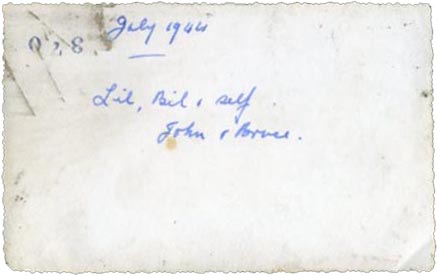 July 1944
028
Lil, Bil & self
John & Bruce.